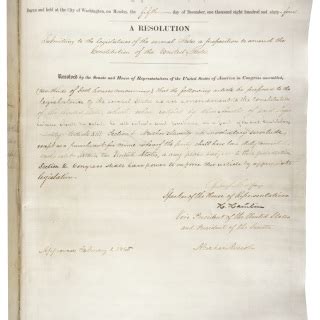 Begun and held at the City of Washington, on Monday, the fifth day of December, one thousand eight hundred and sixty-four
A RESOLUTION
Submitting to the legislatures of the several States a proposition to amend the
Constitution of the United States.
Resolved by the Senate and House of Representatives of the United States of America in Congress assembled,
(two-thirds of both houses concurring) that the following article be proposed to
the legislatures of the several States as an amendment to the constitution
of the United States, which
Article XIII. Section 1. Neither Slavery nor involuntary servitude,
except as a punishment for crime whereof the party shall have been duly convicted,
shall exist within the United States, or any place subject to their jurisdiction.
Section 2. Congress shall have power to enforce this article by appropriate
legislation.
Speaker of the House of Representatives
H. Hamlin
Vice President of the United States
and President of the Senate
Approved February 1, 1865
Abraham Lincoln